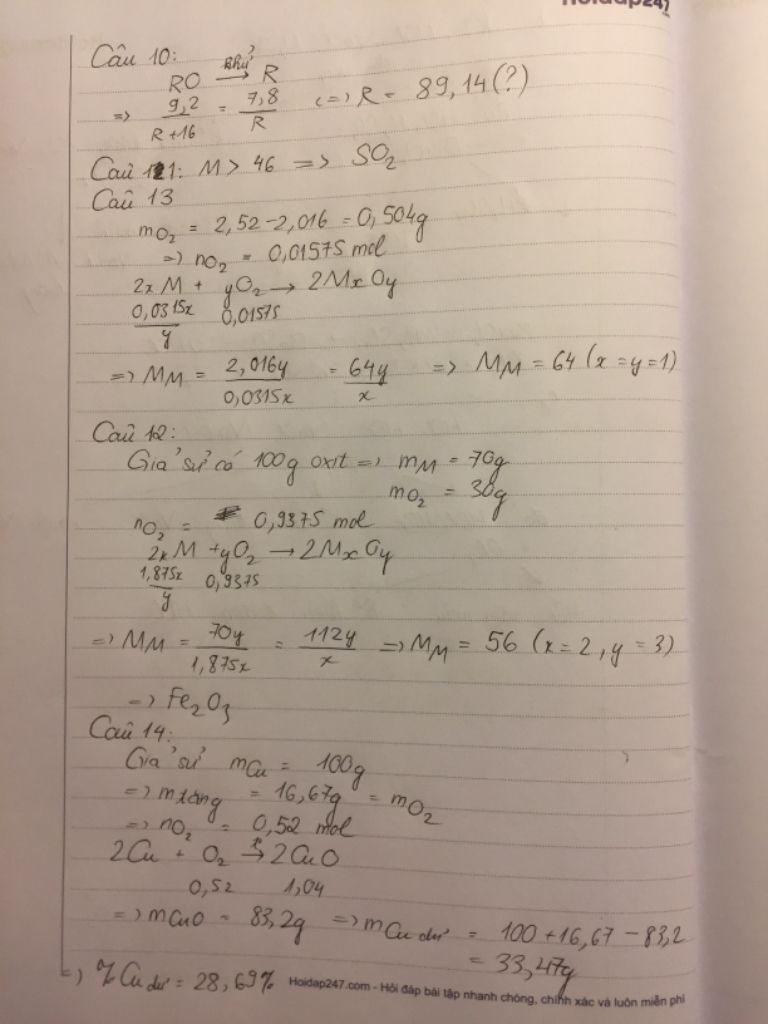 Hoidap247
Câu 10:
RO —khử→ R
=> 9,2/(R+16) = 7,8/R <=> R = 89,14(?)
Câu 11: M > 46 => SO₂
Câu 13
mO₂ = 2,52-2,016 = 0,504g
=> nO₂ = 0,01575 mol
2xM + yO₂ → 2MxOy
0,0315x/y 0,01575
=> MM = 2,016y/0,0315x = 64y/x => MM = 64 (x=y=1)
Câu 12:
Giả sử có 100g oxit => mM = 70g
mO₂ = 30g
nO₂ = 0,9375 mol
2xM + yO₂ → 2MxOy
1,875x/y 0,9375
=> MM = 70y/1,875x = 112y/x => MM = 56 (x=2, y=3)
=> Fe₂O₃
Câu 14:
Giả sử mCu = 100g
=> mtăng = 16,67g = mO₂
=> nO₂ = 0,52 mol
2Cu + O₂ → 2CuO
0,52 1,04
=> mCuO = 83,2g => mCu dư = 100 + 16,67 - 83,2
= 33,47g
=> %Cu dư = 28,69% Hoidap247.com - Hỏi đáp bài tập nhanh chóng, chính xác và luôn miễn phí